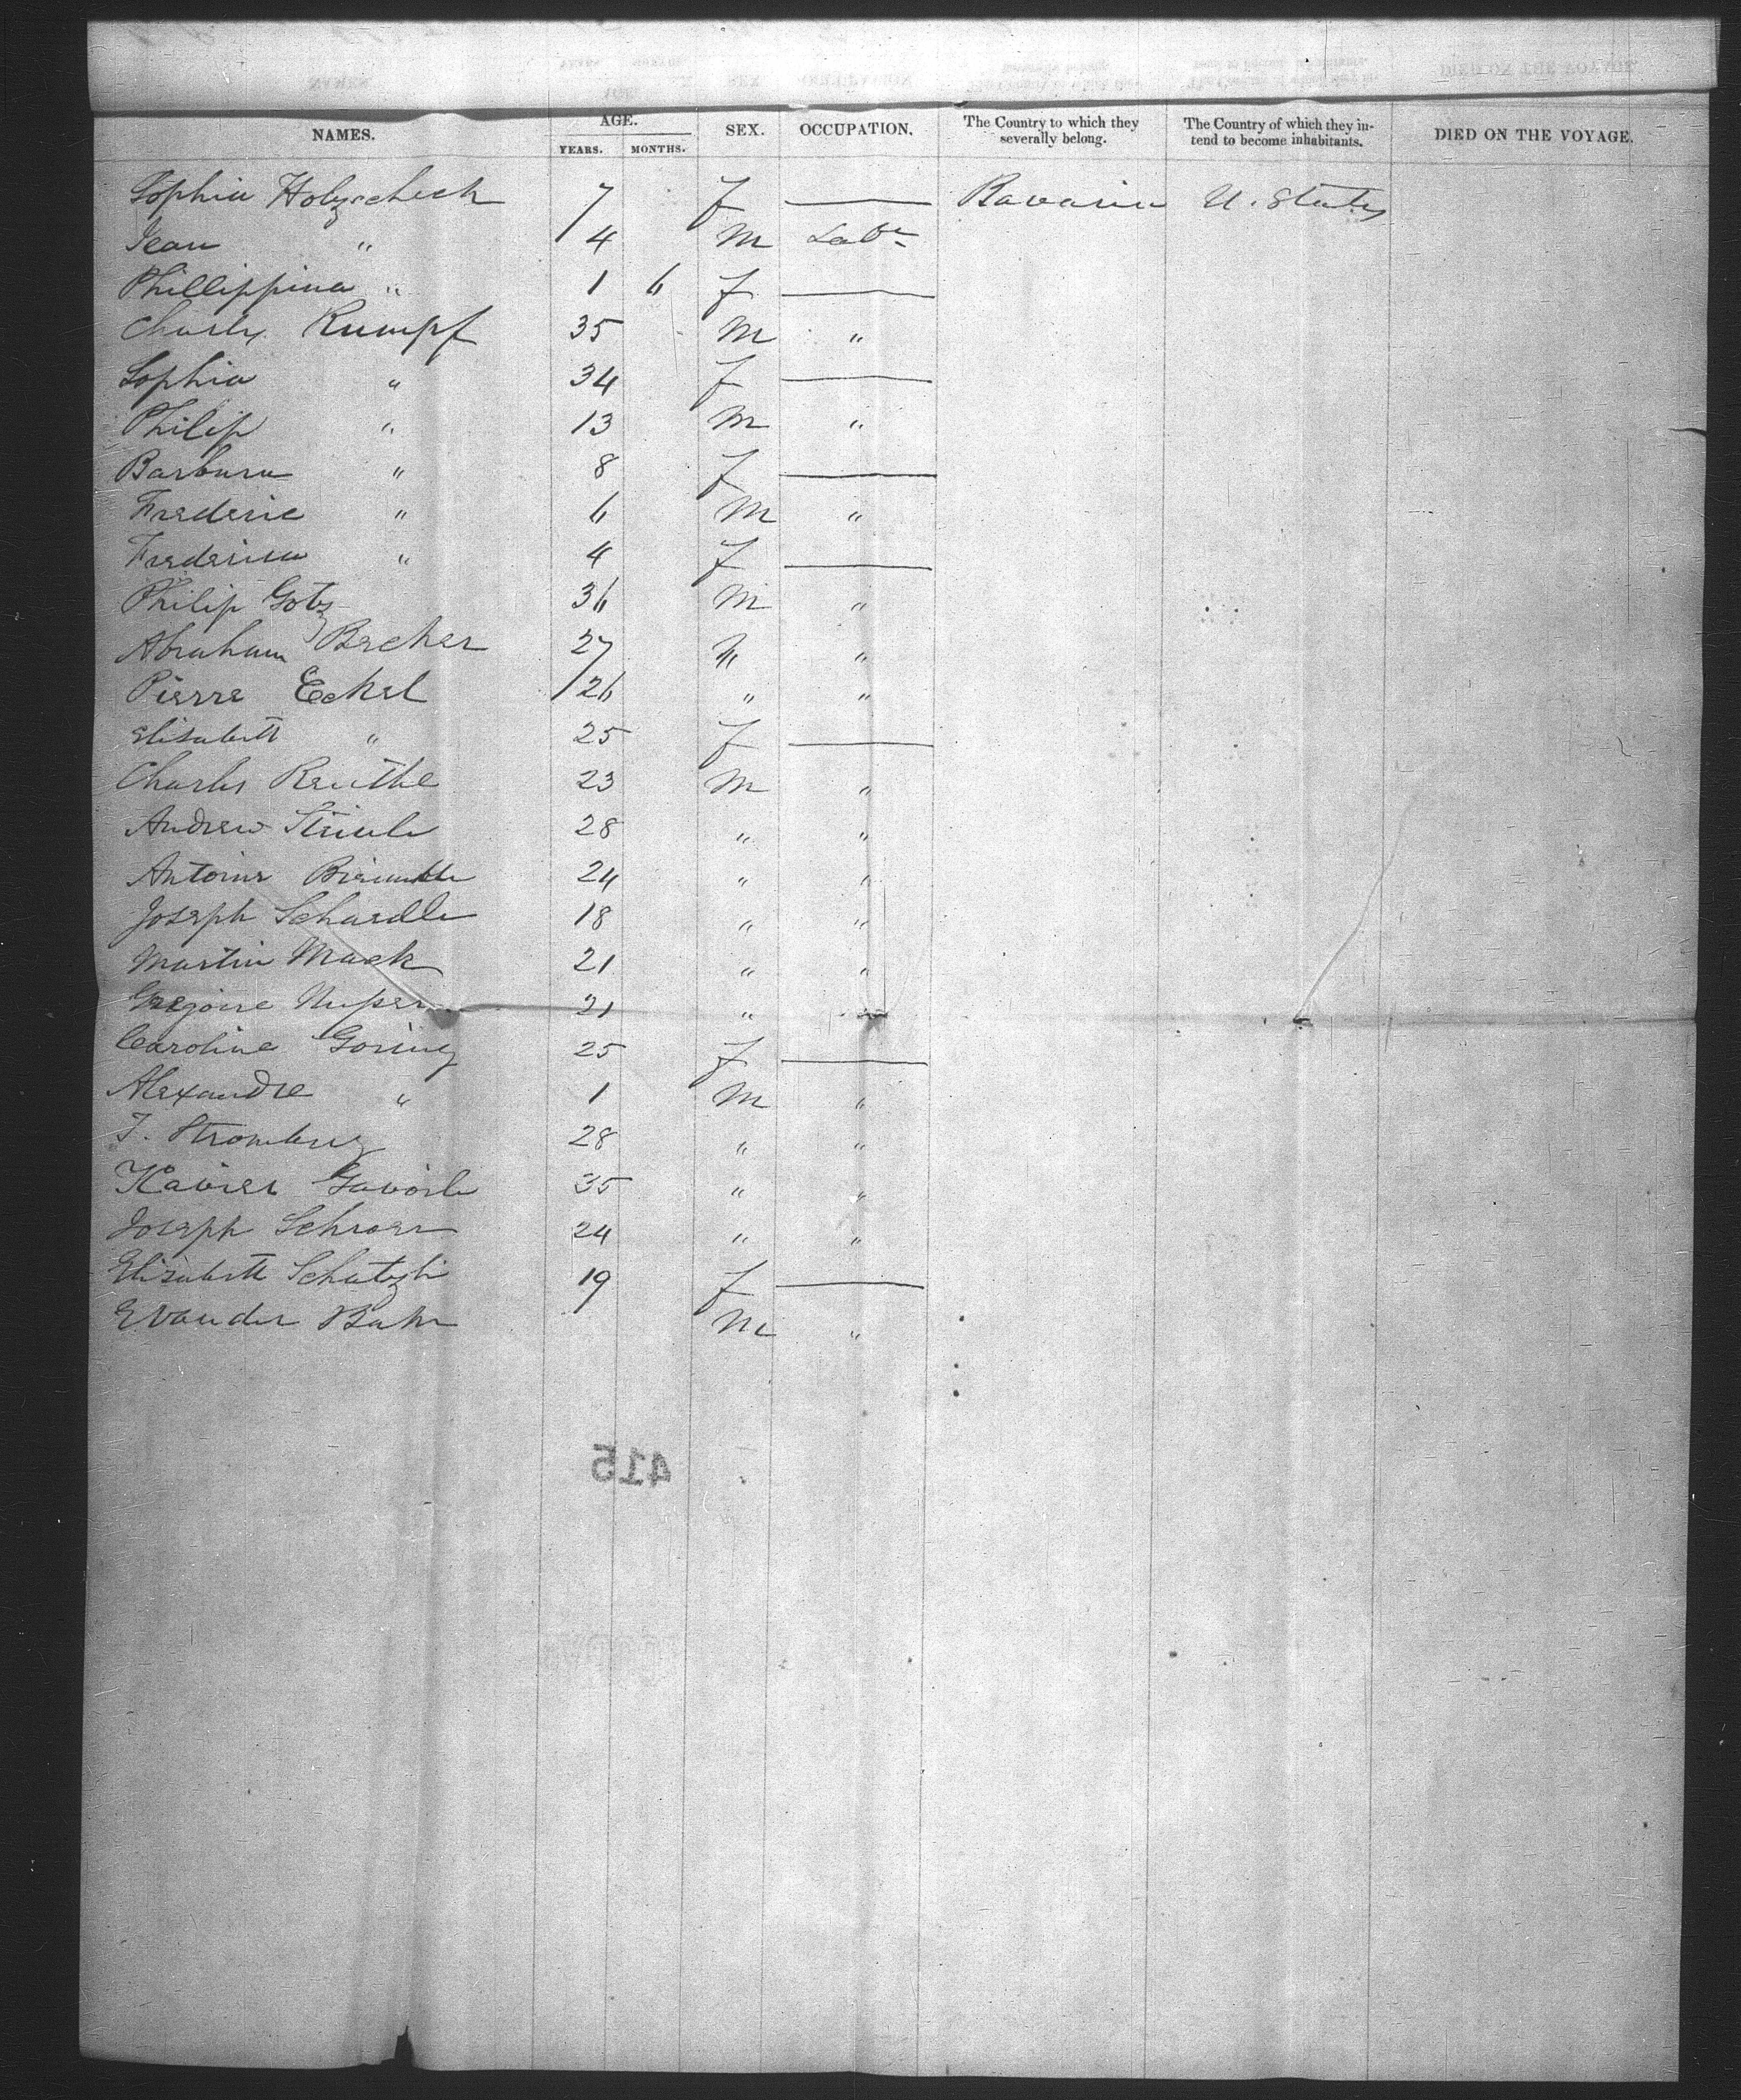 NAMES. AGE. YEARS. MONTHS. SEX. OCCUPATION. The Country to which they severally belong. The Country of which they intend to become inhabitants. DIED ON THE VOYAGE.
Sophia Holzscheck 7 f — Bavaria U. States
Jean " 4 M Labr
Phillippina " 1 6 f —
Charles Rumpf 35 M "
Sophia " 34 f —
Philip " 13 M "
Barbara " 8 f —
Frederic " 6 M "
Frederica " 4 f —
Philip Gotz 36 M "
Abraham Becker 27 " "
Pierre Eckel 26 " "
Elisabeth " 25 f —
Charles Reuthe 23 M "
Andrew 28 " "
Antoine 24 " "
Joseph Schaedle 18 " "
Martin Mack 21 " "
Gregoire 21 " "
Caroline Goring 25 f —
Alexandre " 1 M "
J. Stromberg 28 " "
Xavier 35 " "
Joseph Schroer 24 " "
Elisabeth Schatzli 19 f —
Evander Bahr M "
415